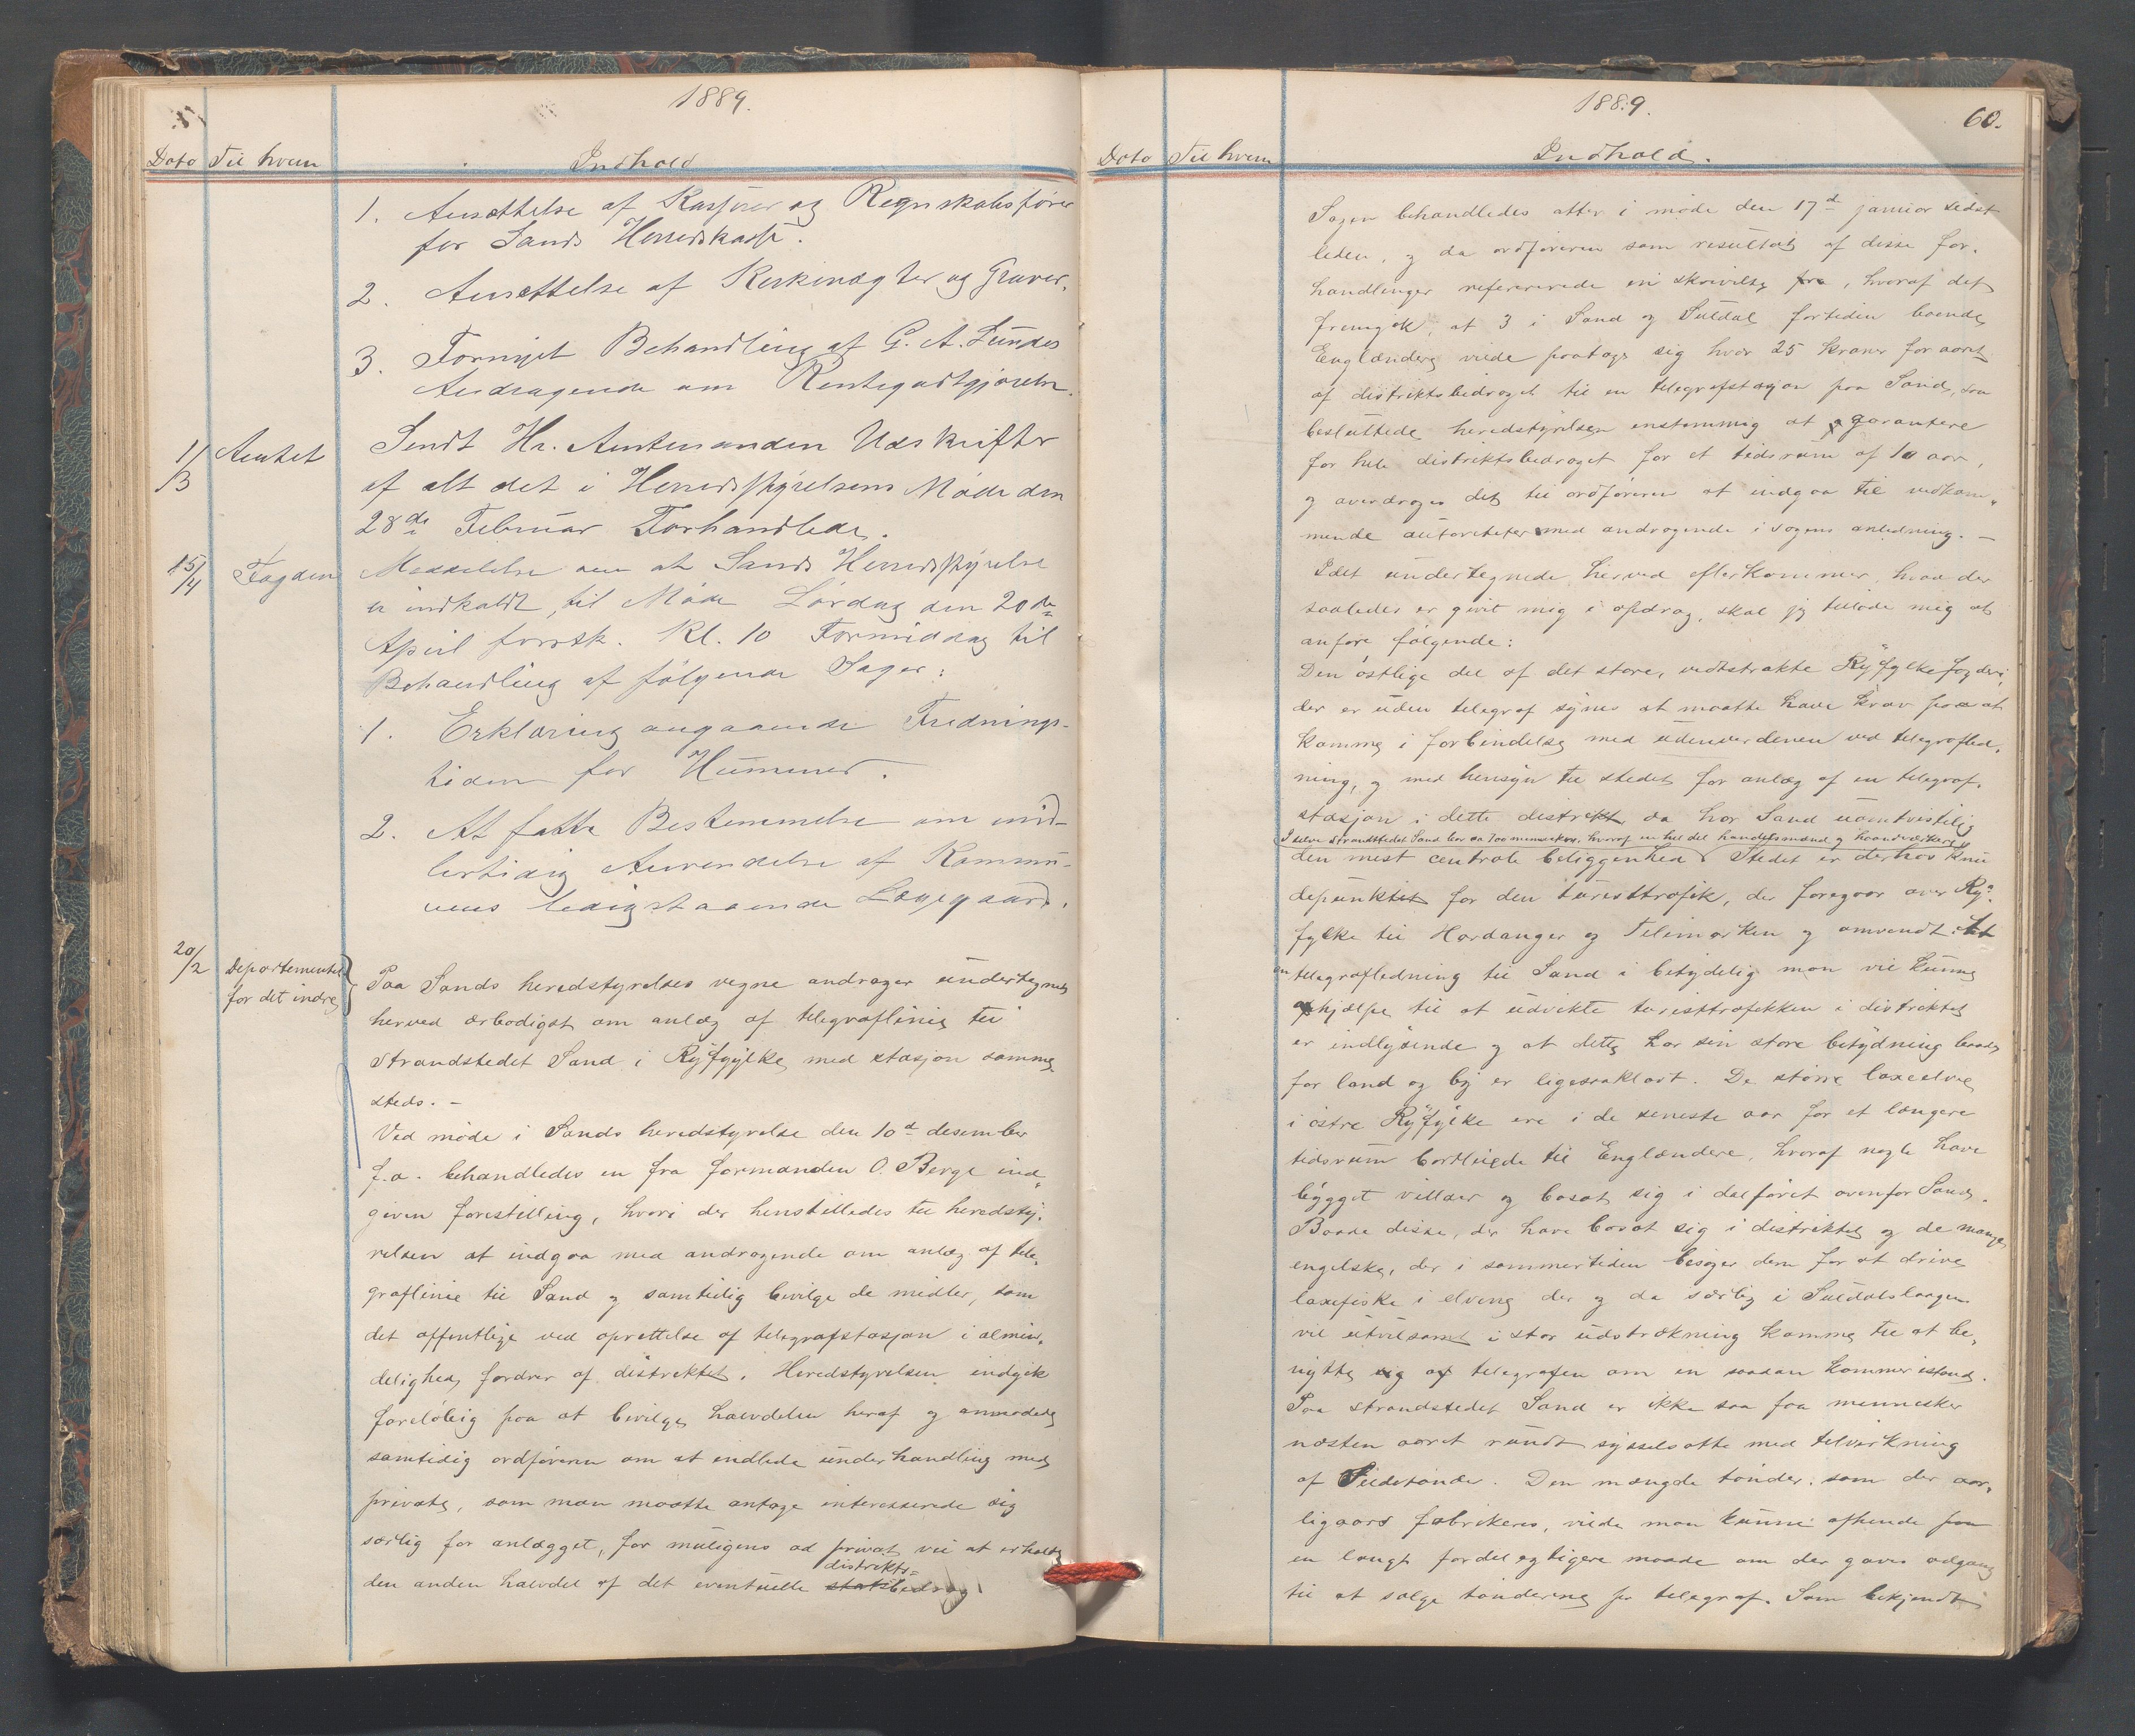 1889.
Dato Til hvem Indhold
1. Ansættelse af Kasserer og Regnskabsfører
for Sands Herredskasse.
2. Ansættelse af Kirkevægter og Graver.
3. Fornyet Behandling af G. A. Lundes
Andragende om Rentegodtgjørelse.
1/3 Amtet Sendt Hr. Amtmanden Udskrifter
af alt det i Herredsstyrelsens Møde den
28de Februar Forhandlede.
15/4 Fogden Meddelelse om at Sands Herredsstyrelse
er indkaldt til Møde Lørdag den 20de
April førstk. Kl. 10 Formiddag til
Behandling af følgende Sager:
1. Erklæring angaaende Frednings-
tiden for Hummer.
2. At fatte Bestemmelse om mid-
lertidig Anvendelse af Kommu-
nens ledigstaaende Lægegaard.
20/2 Departementet for det indre
Paa Sands heredstyrelses vegne andrager undertegnede
herved ærbødigst om anlæg af telegraflinie til
strandstedet Sand i Ryfylke med stasjon samme
steds. –
Ved møde i Sands heredstyrelse den 10de desember
f.a. behandledes en fra formanden O. Berge ind-
given forestilling, hvori der henstilledes til heredsty-
relsen at indgaa med andragende om anlæg af tele-
graflinie til Sand og samtidig bevilge de midler, som
det offentlige ved oprettelse af telegrafstasjon i almin-
delighed fordrer af distriktet. Heredstyrelsen indgik
foreløbig paa at bevilge halvdelen heraf og anmodede
samtidig ordføreren om at indlede underhandling med
private, som man maatte antage interesserede sig
særlig for anlægget, for muligens ad privat vei at erholde
distrikts-
den anden halvdel af det eventuelle statsbedrag
1889.
60.
Dato Til hvem Indhold.
Sagen behandledes atter i møde den 17de januar sidst
leden, og da ordføreren som resultat af disse for-
handlinger refererede en skrivelse fra, hvoraf det
fremgik, at 3 i Sand og Suldal fortiden boende
Englændere vilde paatage sig hver 25 kroner for aaret
af distriktsbedraget til en telegrafstasjon paa Sand, saa
besluttede heredstyrelsen enstemmig at garantere
for hele distriktsbedraget for et tidsrum af 10 aar,
og overdroges det til ordføreren at indgaa til vedkom-
mende autoriteter med andragende i sagens anledning. –
Idet undertegnede herved efterkommer, hvad der
saaledes er givet mig i opdrag, skal jeg tillade mig at
anføre følgende:
Den østlige del af det store, vidtstrakte Ryfylke fogderi,
der er uden telegraf synes at maatte have krav paa at
komme i forbindelse med udenverdenen ved telegrafled-
ning, og med hensyn til stedet for anlæg af en telegraf-
stasjon i dette distrikt da har Sand uomtvistelig
I selve strandstedet Sand bor ca 700 mennesker, hvoraf en hel del handelsmænd og haandværkere
den mest centrale beliggenhed. Stedet er derhos knu
depunktet for den turisttrafik, der foregaar over Ry-
fylke til Hardanger og Telemarken og omvendt. At
en telegrafledning til Sand i betydelig mon vil kunne
hjælpe til at udvikle turisttrafikken i distriktet
er indlysende og at dette har sin store betydning baade
for land og by er ligesaa klart. De større laxeelve
i østre Ryfylke ere i de seneste aar for et længere
tidsrum bortleiede til Englændere, hvoraf nogle have
bygget villaer og bosat sig i dalføret ovenfor Sand.
Baade disse, der have bosat sig i distriktet og de mange
engelske, der i sommertiden besøger dem for at drive
laxefiske i elvene der og da særlig i Suldalslaagen
vil utvilsomt i stor udstrækning komme til at be-
nytte sig af telegrafen om en saadan kommer istand.
Paa strandstedet Sand er ikke saa faa mennesker
næsten aaret rundt sysselsatte med tilvirkning
af Sildetønder. Den mængde tønder, som der aar-
ligaars fabrikeres, vilde man kunne afhende paa
en langt fordelagtigere maade om der gaves adgang
til at sælge tønderne pr telegraf. Som bekjendt